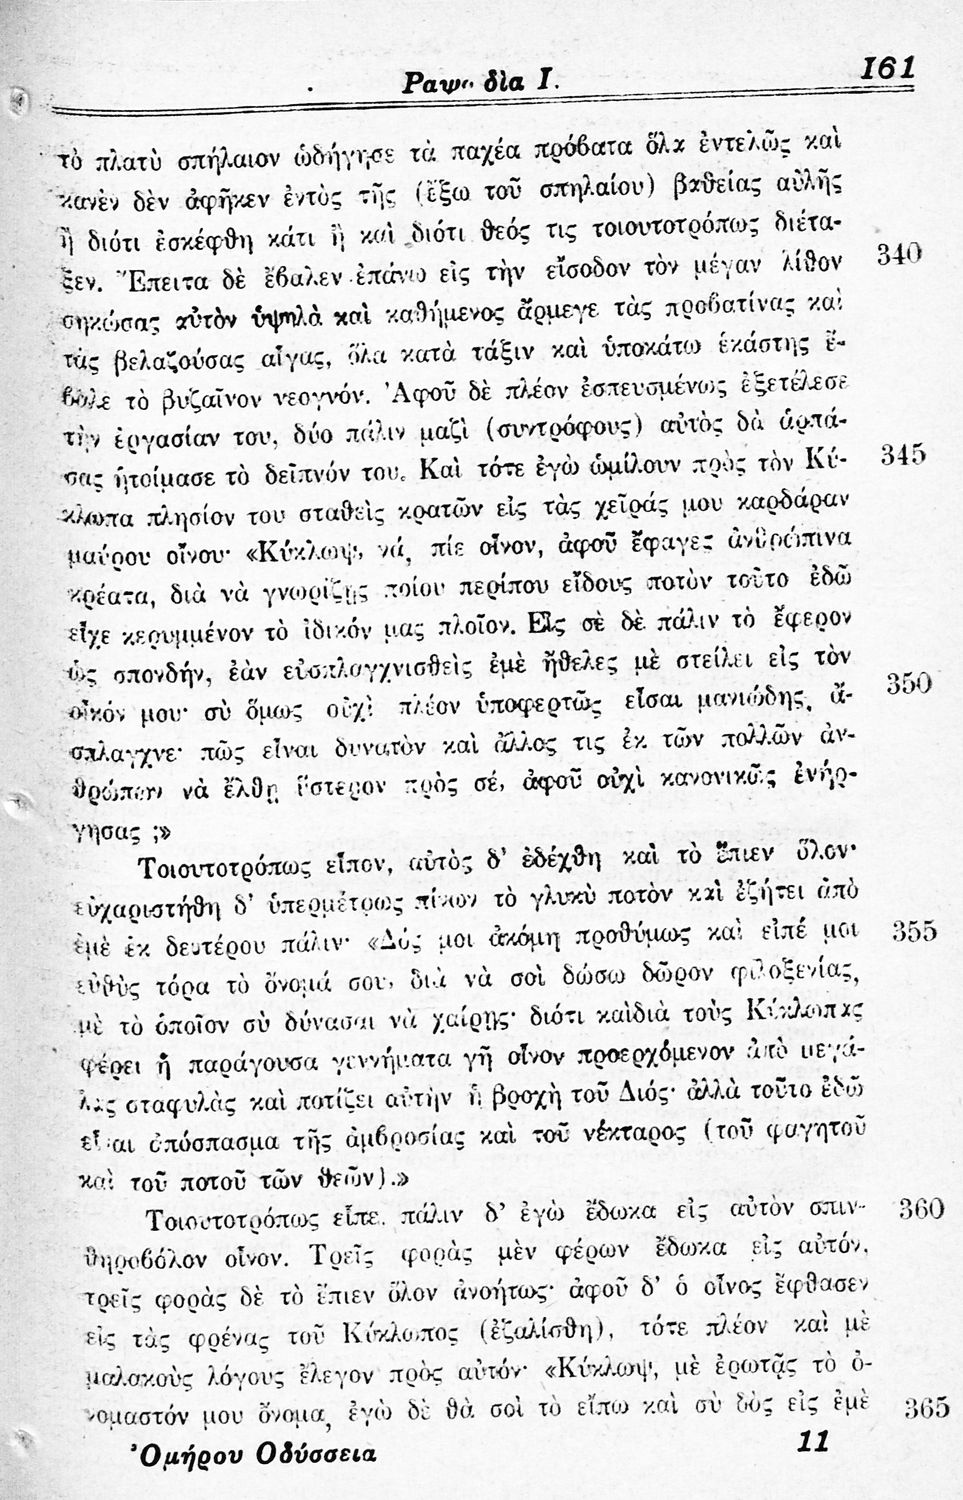 Ραψῳδία Ι.
161
τὸ πλατὺ σπήλαιον ὡδήγησε τὰ παχέα πρόβατα ὅλα ἐντελῶς καὶ
κανὲν δὲν ἀφῆκεν ἐντὸς τῆς (ἔξω τοῦ σπηλαίου) βαθείας αὐλῆς
ἢ διότι ἐσκέφθη κάτι ἢ καὶ διότι θεός τις τοιουτοτρόπως διέτα-
ξεν. Ἔπειτα δὲ ἔβαλεν ἐπάνω εἰς τὴν εἴσοδον τὸν μέγαν λίθον 340
σηκώσας αὐτὸν ὑψηλὰ καὶ καθήμενος ἄρμεγε τὰς προβατίνας καὶ
τὰς βελαζούσας αἶγας, ὅλα κατὰ τάξιν καὶ ὑποκάτω ἑκάστης ἔ-
βαλε τὸ βυζαῖνον νεογνόν. Ἀφοῦ δὲ πλέον ἐσπευσμένως ἐξετέλεσε
τὴν ἐργασίαν του, δύο πάλιν μαζὶ (συντρόφους) αὐτὸς δὰ ἁρπά-
σας ἡτοίμασε τὸ δεῖπνόν του. Καὶ τότε ἐγὼ ὡμίλουν πρὸς τὸν Κύ- 345
κλωπα πλησίον του σταθεὶς κρατῶν εἰς τὰς χεῖράς μου καρδάραν
μαύρου οἴνου· «Κύκλωψ, νά, πίε οἶνον, ἀφοῦ ἔφαγες ἀνθρώπινα
κρέατα, διὰ νὰ γνωρίζῃς ποίου περίπου εἴδους ποτὸν τοῦτο ἐδῶ
εἶχε κερυμμένον τὸ ἰδικόν μας πλοῖον. Εἰς σὲ δὲ πάλιν τὸ ἔφερον
ὡς σπονδήν, ἐὰν εὐσπλαγχνισθεὶς ἐμὲ ἤθελες μὲ στείλει εἰς τὸν
οἶκόν μου· σὺ ὅμως οὐχὶ πλέον ὑποφερτῶς εἶσαι μανιώδης, ἄ- 350
σπλαγχνε· πῶς εἶναι δυνατὸν καὶ ἄλλος τις ἐκ τῶν πολλῶν ἀν-
θρώπων νὰ ἔλθῃ ὕστερον πρὸς σέ, ἀφοῦ οὐχὶ κανονικῶς ἐνήρ-
γησας ;»
Τοιουτοτρόπως εἶπον, αὐτὸς δ' ἐδέχθη καὶ τὸ ἔπιεν ὅλον·
εὐχαριστήθη δ' ὑπερμέτρως πίνων τὸ γλυκὺ ποτὸν καὶ ἐζήτει ἀπὸ
ἐμὲ ἐκ δευτέρου πάλιν· «Δός μοι ἀκόμη προθύμως καὶ εἰπέ μοι 355
εὐθὺς τόρα τὸ ὄνομά σου, διὰ νὰ σοὶ δώσω δῶρον φιλοξενίας,
μὲ τὸ ὁποῖον σὺ δύνασαι νὰ χαίρῃς· διότι καὶδιὰ τοὺς Κύκλωπας
φέρει ἡ παράγουσα γεννήματα γῆ οἶνον προερχόμενον ἀπὸ μεγά-
λας σταφυλὰς καὶ ποτίζει αὐτὴν ἡ βροχὴ τοῦ Διός· ἀλλὰ τοῦτο ἐδῶ
εἶναι ἀπόσπασμα τῆς ἀμβροσίας καὶ τοῦ νέκταρος (τοῦ φαγητοῦ
καὶ τοῦ ποτοῦ τῶν θεῶν).»
Τοιουτοτρόπως εἶπε. πάλιν δ' ἐγὼ ἔδωκα εἰς αὐτὸν σπιν- 360
θηροβόλον οἶνον. Τρεῖς φορὰς μὲν φέρων ἔδωκα εἰς αὐτόν,
τρεῖς φορὰς δὲ τὸ ἔπιεν ὅλον ἀνοήτως· ἀφοῦ δ' ὁ οἶνος ἔφθασεν
εἰς τὰς φρένας τοῦ Κύκλωπος (ἐζαλίσθη), τότε πλέον καὶ μὲ
μαλακοὺς λόγους ἔλεγον πρὸς αὐτόν· «Κύκλωψ, μὲ ἐρωτᾷς τὸ ὀ-
νομαστόν μου ὄνομα, ἐγὼ δὲ θὰ σοὶ τὸ εἴπω καὶ σὺ δὸς εἰς ἐμὲ 365
Ὁμήρου Οδύσσεια
11